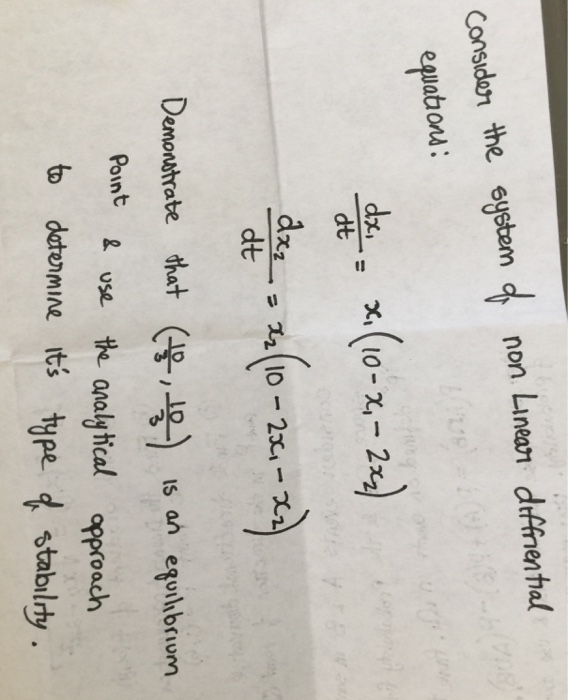 Consider the system of non Linear diffrential
equations:
dx₁/dt = x₁(10 - x₁ - 2x₂)
dx₂/dt = x₂(10 - 2x₁ - x₂)
Demonstrate that (10/3, 10/3) is an equilibrium
Point & use the analytical approach
to determine it's type of stability.